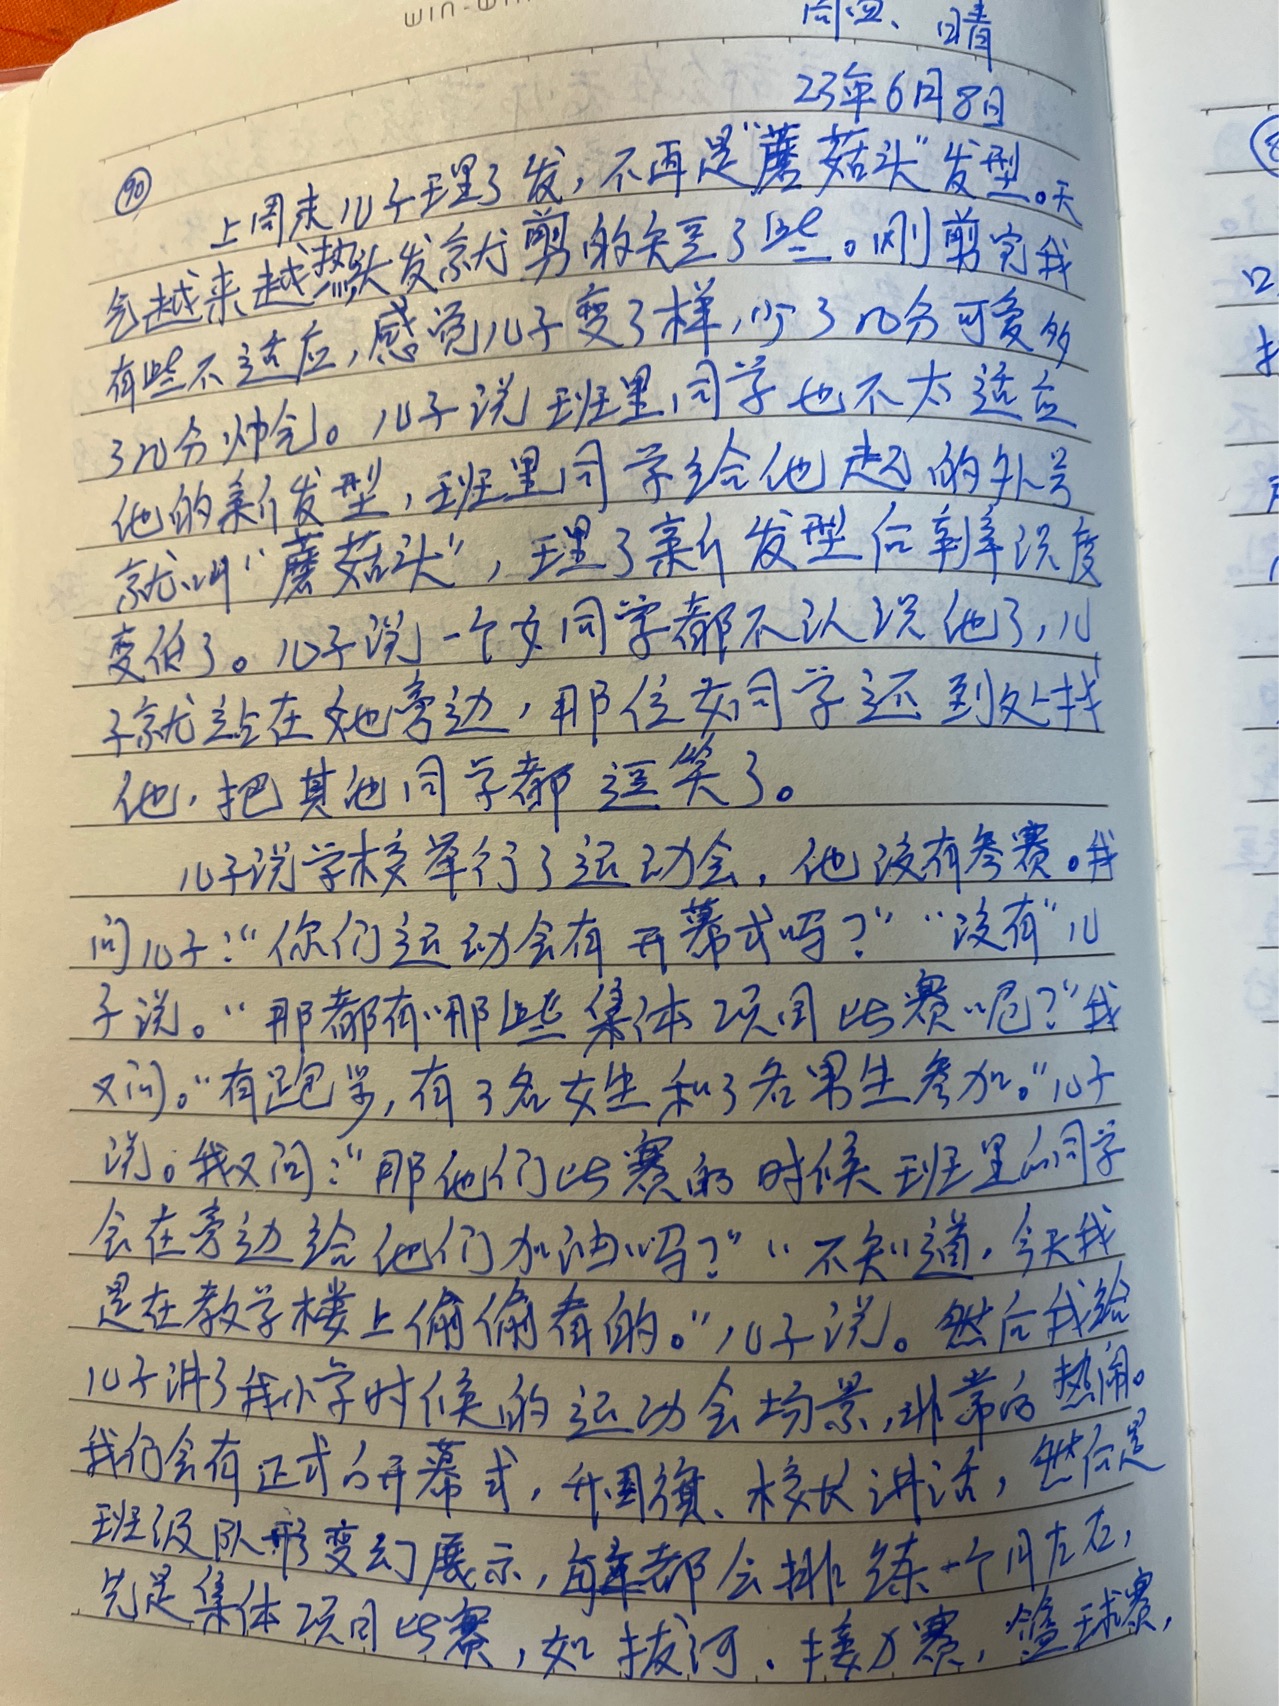 WIN-WIN
周四、晴
23年6月8日
90
上周末儿子理了发，不再是“蘑菇头”发型。天
气越来越热头发就剪的短了些。刚剪完我
有些不适应，感觉儿子变了样，少了几分可爱多
了几分帅气。儿子说班里同学也不太适应
他的新发型，班里同学给他起的外号
就叫“蘑菇头”，理了新发型后辨识度
变低了。儿子说一个女同学都不认识他了，儿
子就站在她旁边，那位女同学还到处找
他，把其他同学都逗笑了。
儿子说学校举行了运动会，他没有参赛。我
问儿子：“你们运动会有开幕式吗？”“没有”儿
子说。“那都有哪些集体项目比赛呢？”我
又问。“有跑步，有3名女生和3名男生参加。”儿子
说。我又问：“那他们比赛的时候班里的同学
会在旁边给他们加油吗？”“不知道，今天我
是在教学楼上偷偷看的。”儿子说。然后我给
儿子讲了我小学时候的运动会场景，非常的热闹。
我们会有正式的开幕式，升国旗、校长讲话，然后是
班级队形变幻展示，每年都会排练一个月左右，
先是集体项目比赛，如拔河、接力赛，篮球赛，